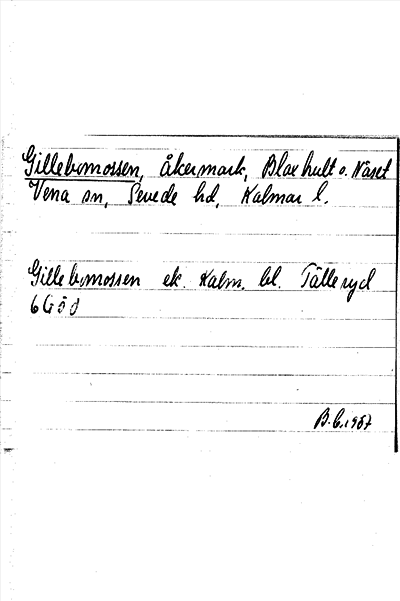 Gillebomossen, åkermark, Blaxhult o. Näset
Vena sn, Sevede hd, Kalmar l.
Gillebomossen ek. Kalm. bl. Tälleryd
6 G ö d
B.C. 1957